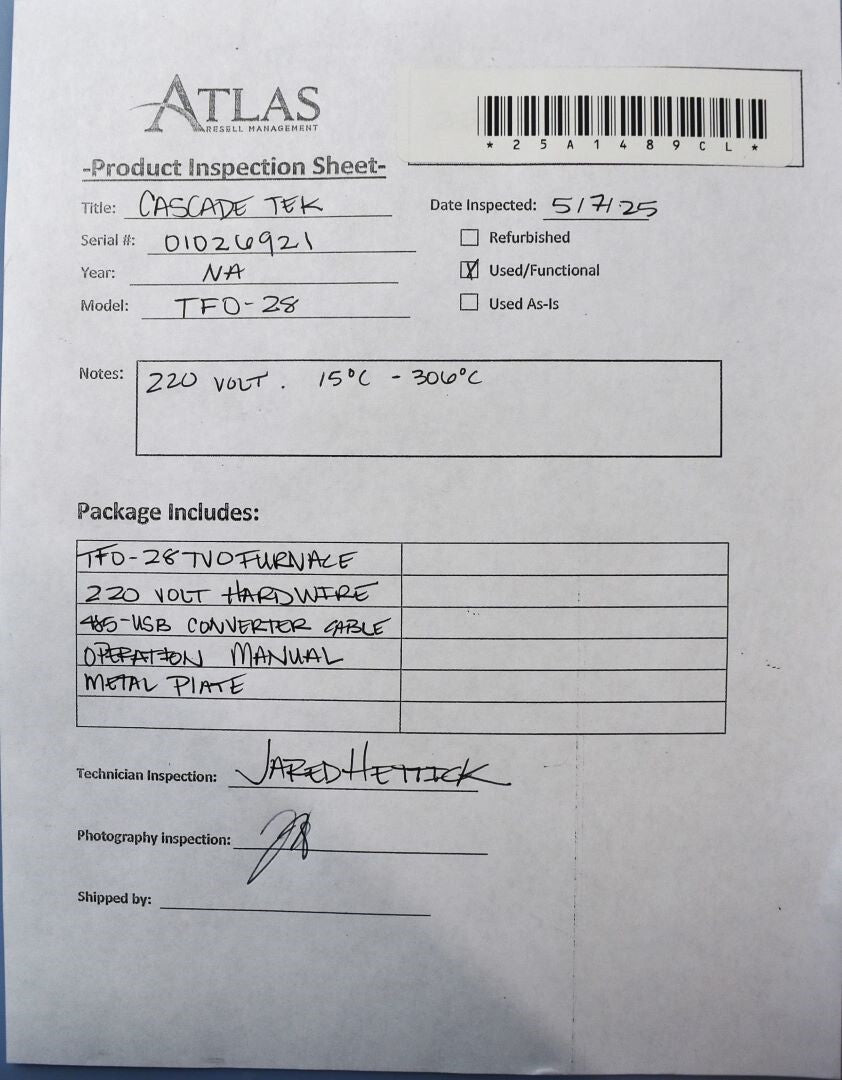 ATLAS
RESELL MANAGEMENT
* 25A1489CL *
-Product Inspection Sheet-
Title: CASCADE TEK
Date Inspected: 5/7/25
Serial #: 01026921
Refurbished
Year: NA
X Used/Functional
Model: TFO-28
Used As-Is
Notes: 220 VOLT. 15°C - 306°C
Package Includes:
TFO-28 TVO FURNACE
220 VOLT HARDWIRE
485-USB CONVERTER CABLE
OPERATION MANUAL
METAL PLATE
Technician Inspection: JARED HETTICK
Photography inspection:
Shipped by: